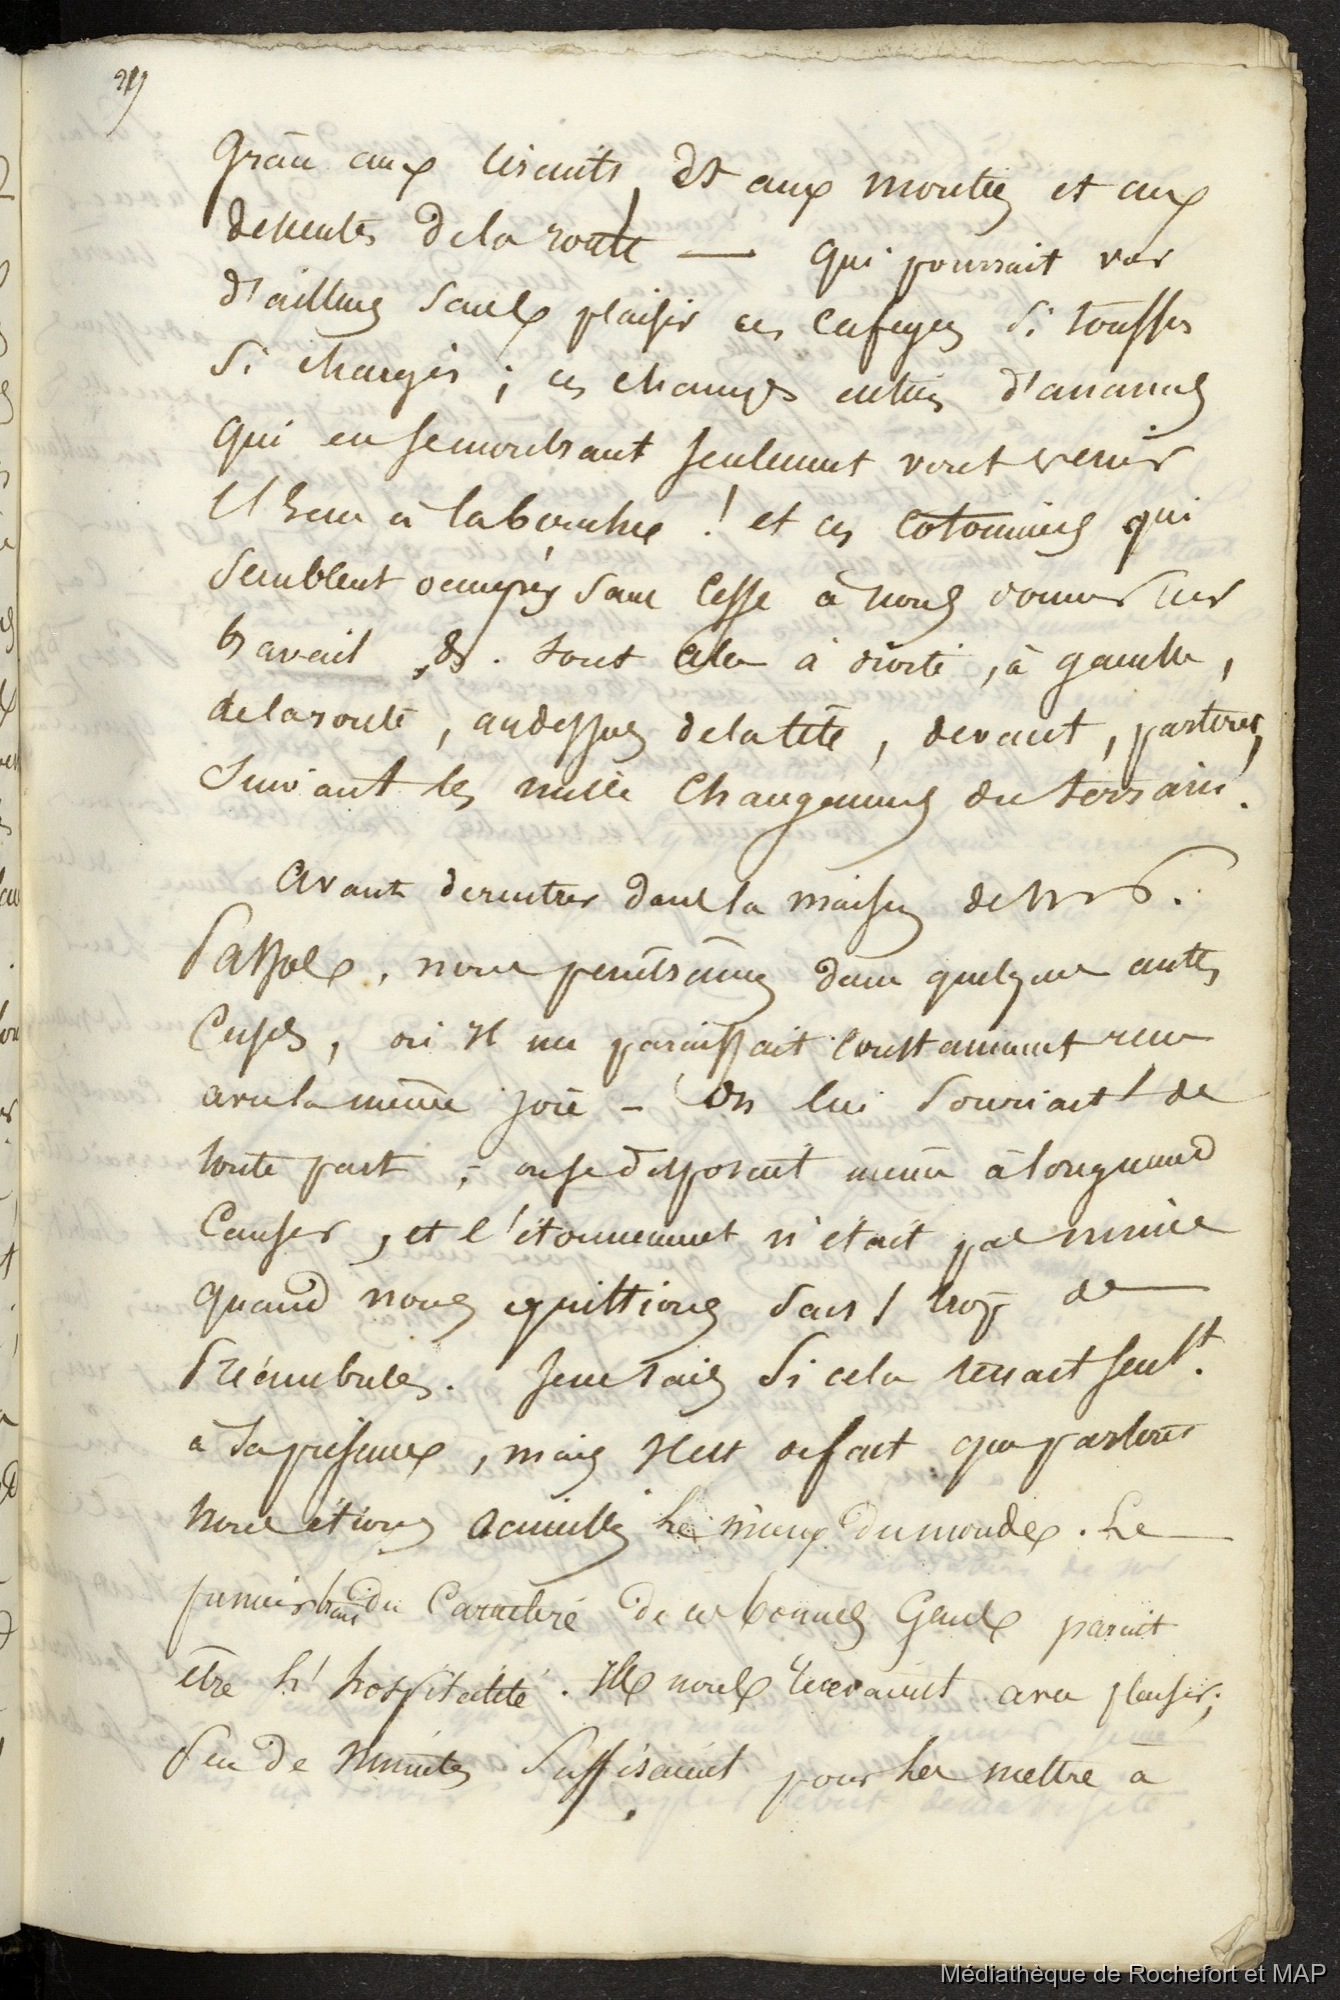 Grâce aux circuits, et aux montées et aux
descentes de la route — qui pourrait voir
d'ailleurs sans plaisir ces cafeyers si touffus
si chargés ; ces champs entiers d'ananas
qui en se montrant seulement vont venir
l'eau à la bouche ! et ces cotonniers qui
semblent occupés sans cesse à nous donner leur
travail, &. tout cela à droite, à gauche,
de la route, au dessus de la tête, devant, par terre,
suivant les mille changemens du terrain.
Avant de rentrer dans la maison de
nous pénétrâmes dans quelques autres
cases, où il me paraissait constamment reçu
avec la même joie – on lui souriait de
toute part ; on se disposait même à longuement
causer, et l'étonnement n'était pas mince
quand nous quittions sans trop de
préambules. Je ne sais si cela tenait seult.
à sa présence, mais il est de fait que partout
nous étions accueillis le mieux du monde. Le
premier trait du caractère de ces bonnes gens parait
être l'hospitalité. Ils nous recevaient avec plaisir ;
peu de minutes suffisaient pour les mettre à
Médiathèque de Rochefort et MAP